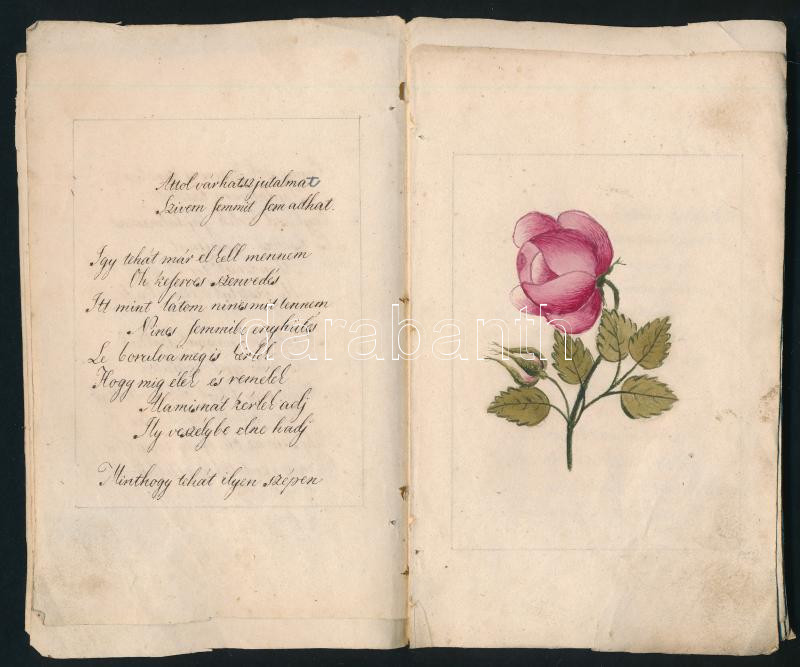 Attol várhatsz jutalmat
Szivem semmit sem adhat.
Igy tehát már el kell mennem
Oh keserves szenvedés
Itt mint látom nincs mit tennem
Nincs semmibe enyhülés
Le borulva mégis kérlek
Hogy mig élek és remélek
Alamisnát kérlek adj
Ily veszélybe elne hádj
Minthogy tehát ilyen szépen
darabanth